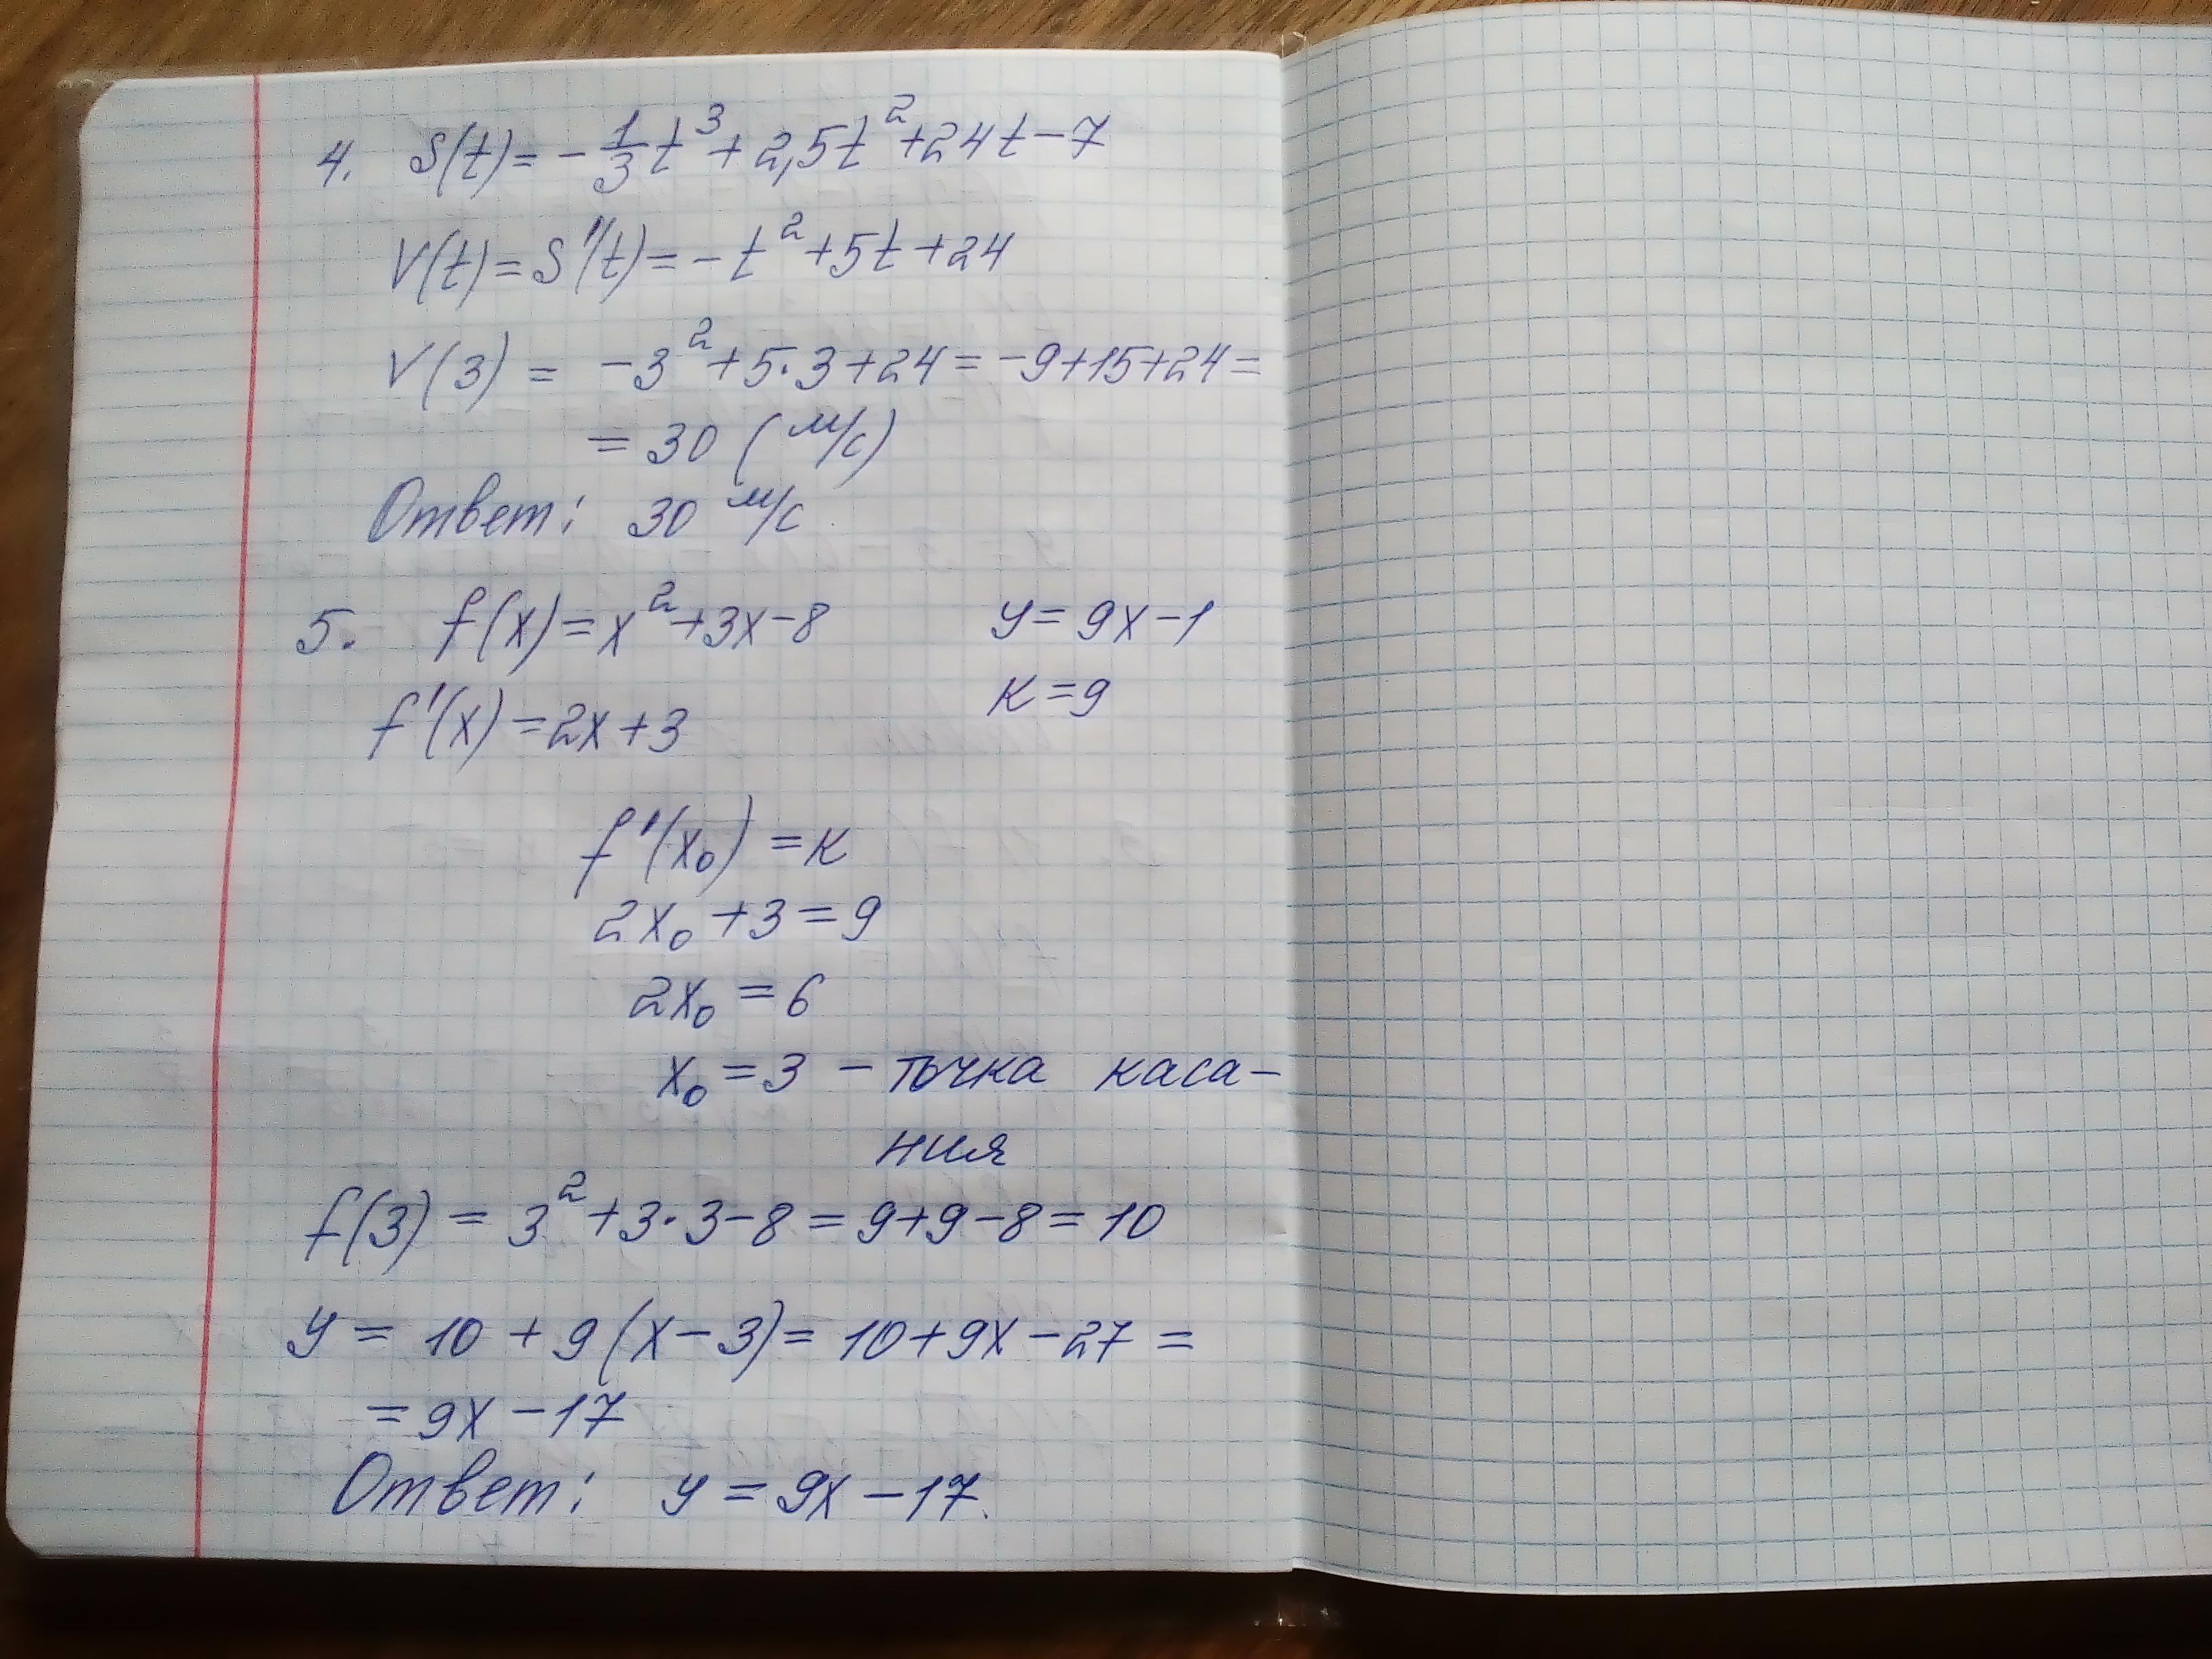 4. S(t) = -1/3 t³ + 2,5t² + 24t - 7
V(t) = S'(t) = -t² + 5t + 24
V(3) = -3² + 5·3 + 24 = -9 + 15 + 24 =
= 30 (м/с)
Ответ: 30 м/с
5. f(x) = x² + 3x - 8 y = 9x - 1
f'(x) = 2x + 3 к = 9
f'(x₀) = к
2x₀ + 3 = 9
2x₀ = 6
x₀ = 3 - точка каса-
ния
f(3) = 3² + 3·3 - 8 = 9 + 9 - 8 = 10
y = 10 + 9(x - 3) = 10 + 9x - 27 =
= 9x - 17
Ответ: y = 9x - 17.